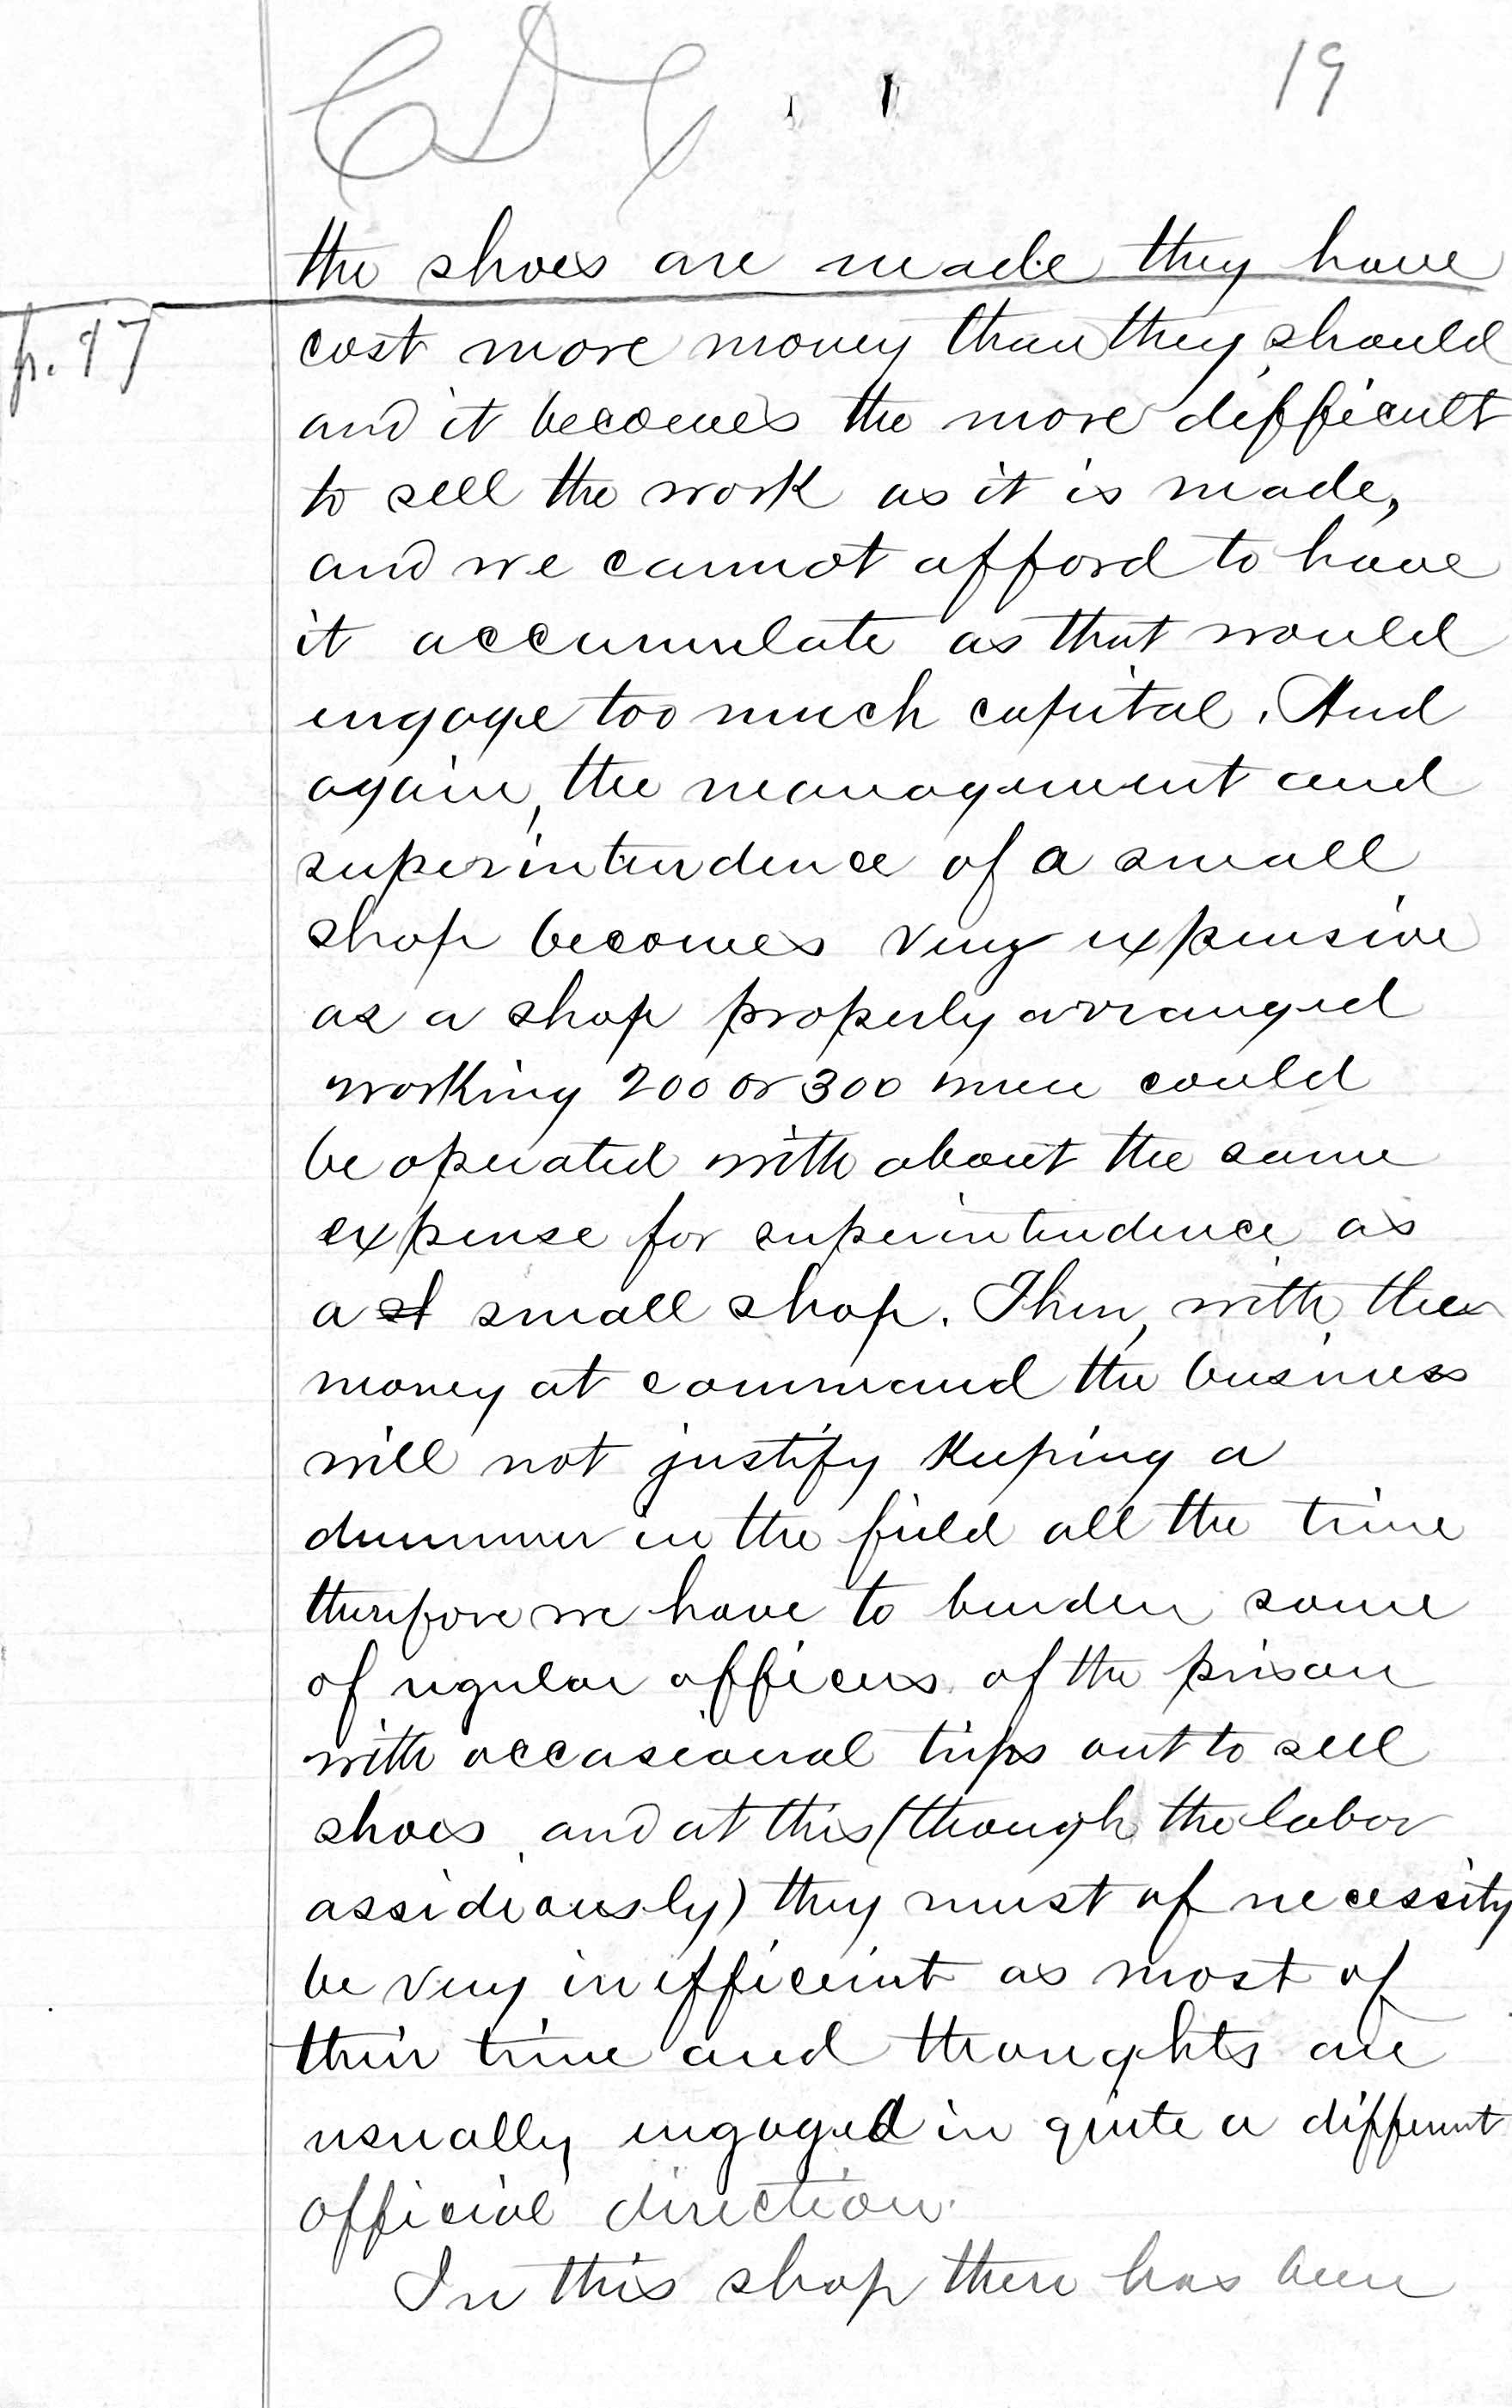 19
the shoes are made they have
p. 97
cost more money than they should
and it becomes the more difficult
to sell the work as it is made,
and we cannot afford to have
it accumulate as that would
engage too much capital. And
again, the management and
superintendence of a small
shop becomes very expensive
as a shop properly arranged
working 200 or 300 men could
be operated with about the same
expense for superintendence as
a st small shop. Then, with the
money at command the business
will not justify keeping a
drummer in the field all the time
therefore we have to burden some
of regular officers of the prison
with occasional trips out to sell
shoes, and at this (though the labor
assidiously) they must of necessity
be very inefficeint as most of
their time and thoughts are
usually engaged in quite a different
official direction.
In this shop there has been